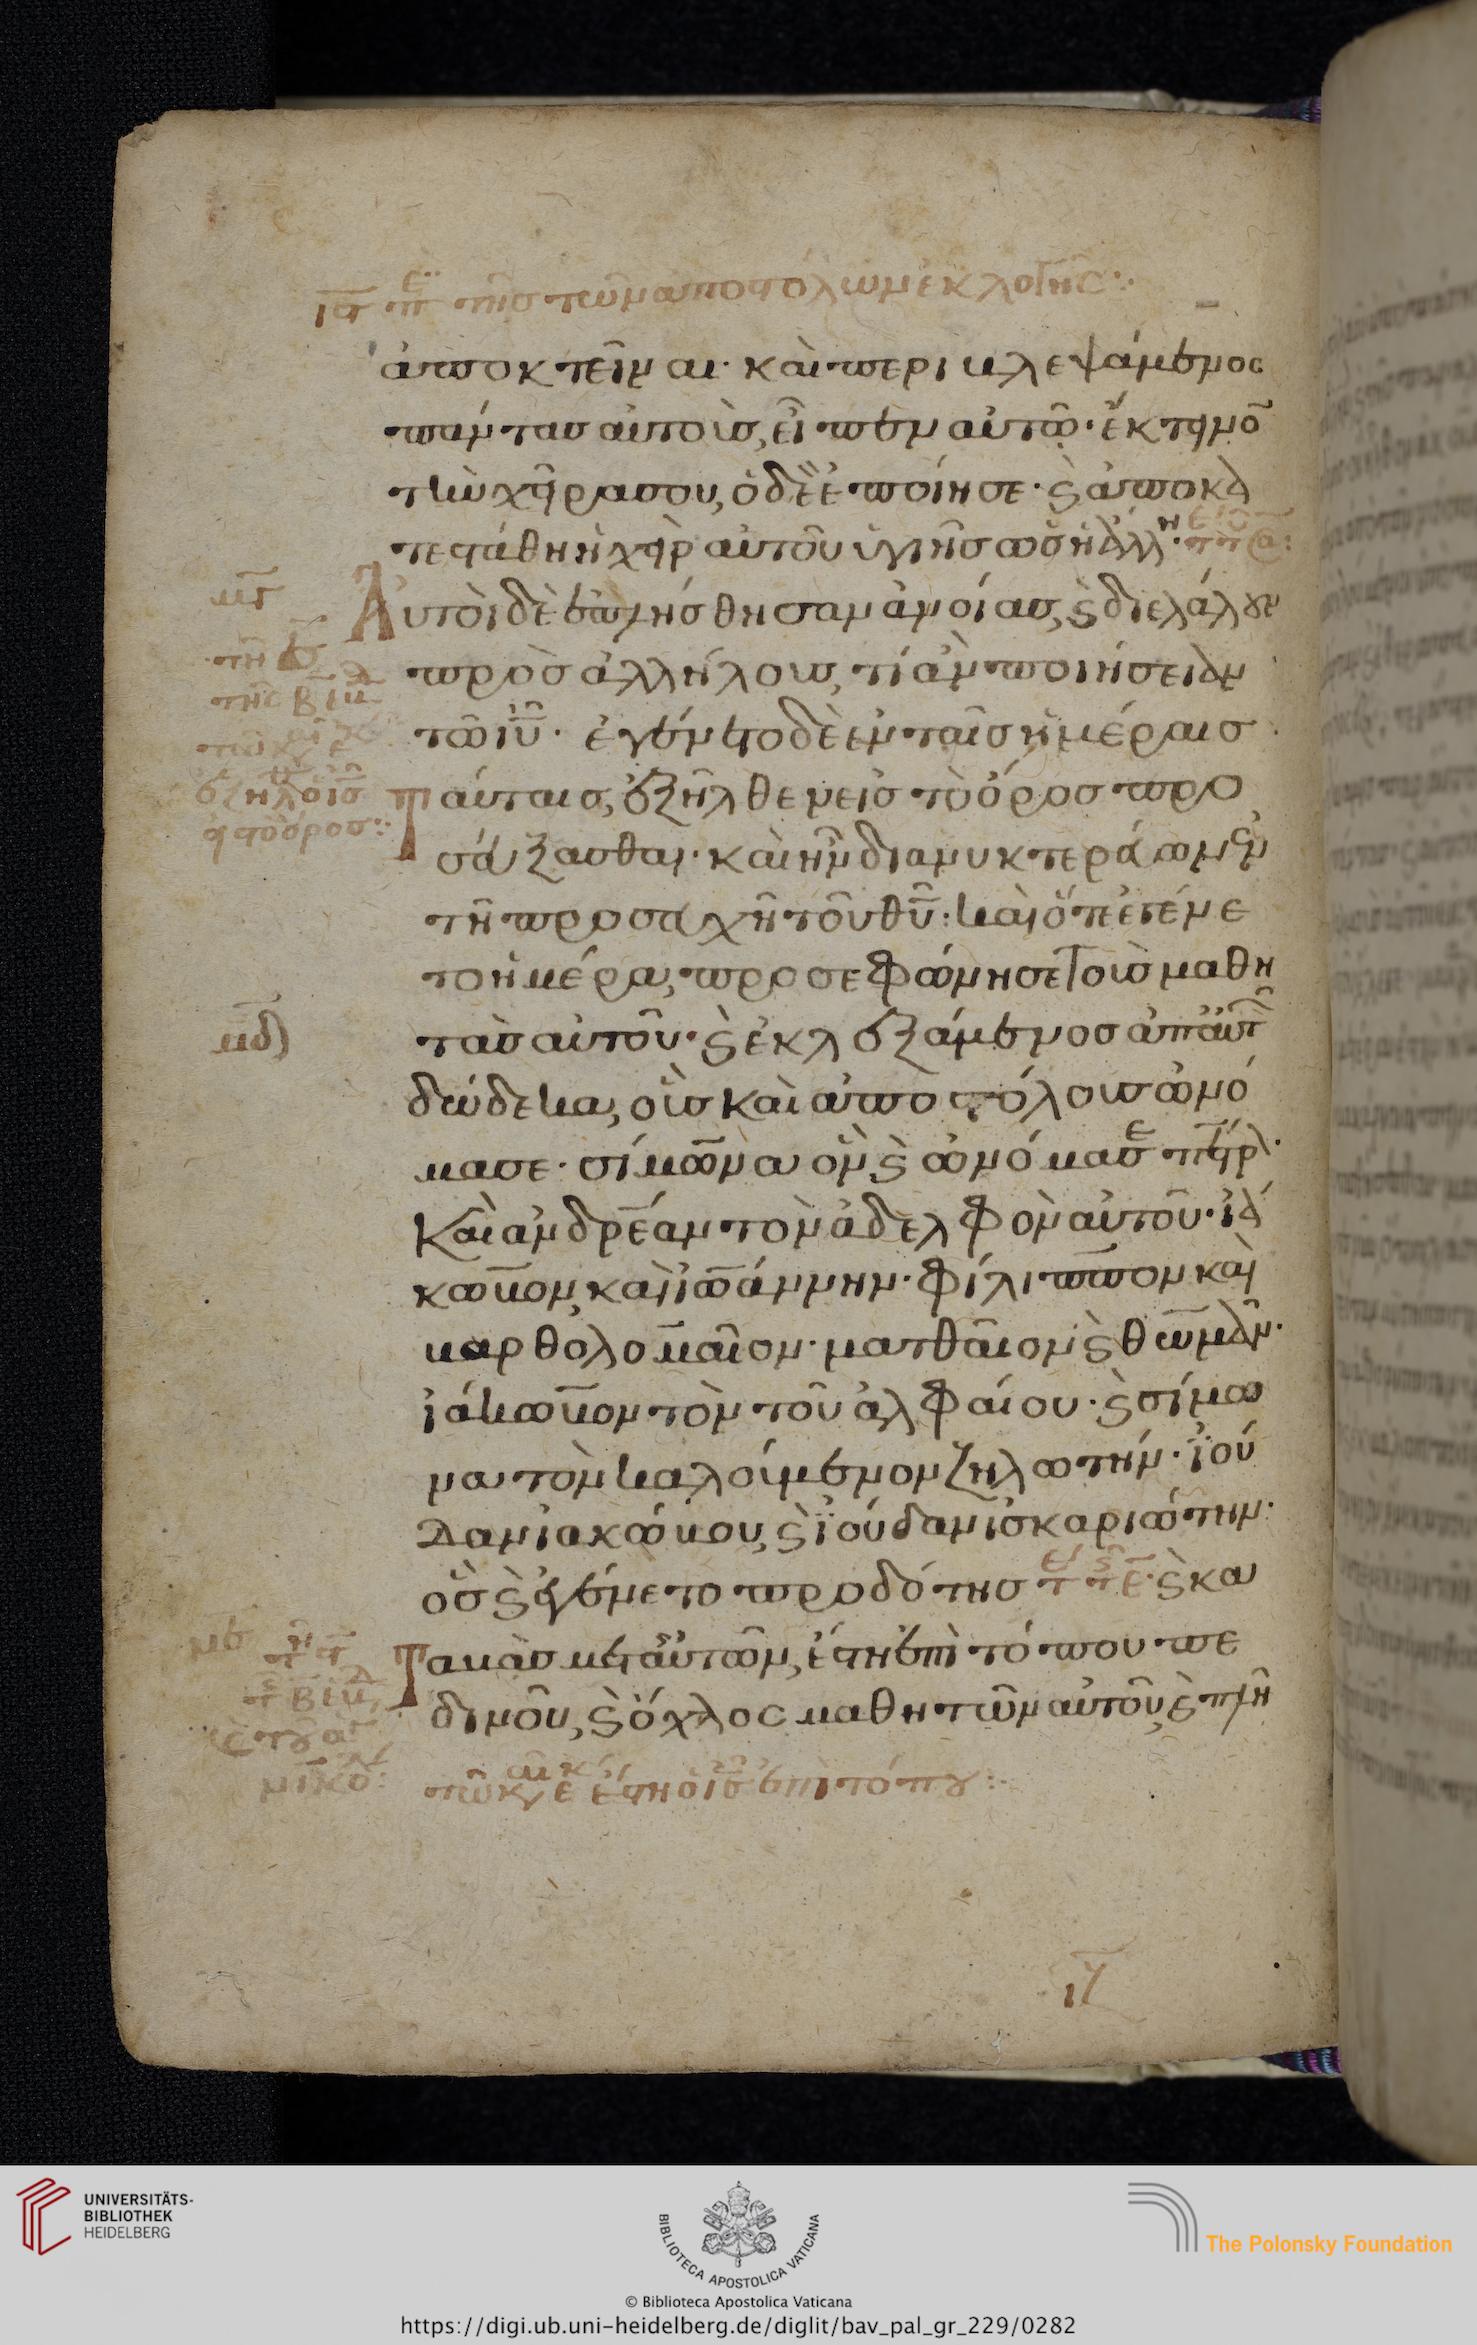 ις πε της των αποστόλων ἐκλογῆς:
ἀποκτεῖναι· καὶ περιβλεψάμενος
πάντας αὐτοὺς, εἶπεν αὐτῶ· ἔκτεινο
τὴν χεῖρα σου, ὁ δὲ ἐποίησε· ϗ ἀποκα
τεστάθη ἡ χεὶρ αὐτοῦ ὑγιὴς ὡς ἡ ἄλλη·
Αὐτοὶ δὲ ἐπλήσθησαν ἀνοίας, ϗ διελάλουν
πρὸς ἀλλήλους, τί ἂν ποιήσειαν
τῶ ιυ· ἐγένετο δὲ ἐν ταῖς ἡμέραις
ἐξῆλθεν ὁ ις
εἰς τὸ ὄρος:
Ταύταις, ἐξῆλθεν εἰς τὸ ὄρος προ
σεύξασθαι· καὶ ἦν διανυκτερεύων ἐν
τῆ προσευχῆ τοῦ θυ· καὶ ὅτε ἐγένε
το ἡμέρα, προσεφώνησε τοὺς μαθη
μδ
τὰς αὐτοῦ· ϗ ἐκλεξάμενος ἀπ αὐτῶν
δώδεκα, οὓς καὶ ἀποστόλους ὠνό
μασε· σίμωνα ὃν ϗ ὠνόμασε πέτρον·
καὶ ἀνδρέαν τὸν ἀδελφὸν αὐτοῦ· ἰά
κωβον, καὶ ἰωάννην· φίλιππον καὶ
βαρθολομαῖον· ματθαῖον ϗ θωμᾶν·
ἰάκωβον τὸν τοῦ ἀλφαίου· ϗ σίμω
να τὸν καλούμενον ζηλωτήν· ἰού
δαν ἰακώβου, ϗ ἰούδαν ἰσκαριώτην·
ὃς ϗ ἐγένετο προδότης ϗ κα
Ταβὰς μετ αὐτῶν, ἔστη ἐπὶ τόπου πε
δινοῦ, ϗ ὄχλος μαθητῶν αὐτοῦ, ϗ πλῆ
τῶ καιρῷ ἐκείνῳ ἔστη ὁ ις ἐπὶ τόπου:
UNIVERSITÄTS-
BIBLIOTHEK
HEIDELBERG
BIBLIOTECA APOSTOLICA VATICANA
The Polonsky Foundation
© Biblioteca Apostolica Vaticana
https://digi.ub.uni-heidelberg.de/diglit/bav_pal_gr_229/0282